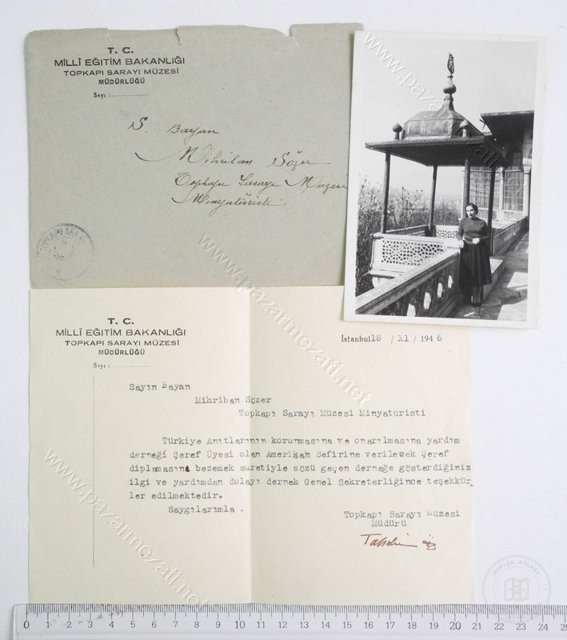 T. C.
MİLLÎ EĞİTİM BAKANLIĞI
TOPKAPI SARAYI MÜZESİ
MÜDÜRLÜĞÜ
Sayı :
S. Bayan
Mihriban Sözer
Topkapı Sarayı Müzesi
Minyatüristi
T. C.
MİLLÎ EĞİTİM BAKANLIĞI
TOPKAPI SARAYI MÜZESİ
MÜDÜRLÜĞÜ
Sayı :
İstanbul 18 / XI / 194 6
Sayın Bayan
Mihriban Sözer
Topkapı Sarayı Müzesi Minyatüristi
Türkiye Anıtlarının korunmasına ve onarılmasına yardım
derneği Şeref Üyesi olan Amerikan Sefirine verilecek Şeref
diplamasını bezemek suretiyle sözü geçen derneğe gösterdiğiniz
ilgi ve yardımdan dolayı dernek Genel Sekreterliğince teşekkür
ler edilmektedir.
Saygılarımla .
Topkapı Sarayı Müzesi
Müdürü
Tahsin Öz
www.pazarmezati.net
0 1 2 3 4 5 6 7 8 9 10 11 12 13 14 15 16 17 18 19 20 21 22 23 24 25 26